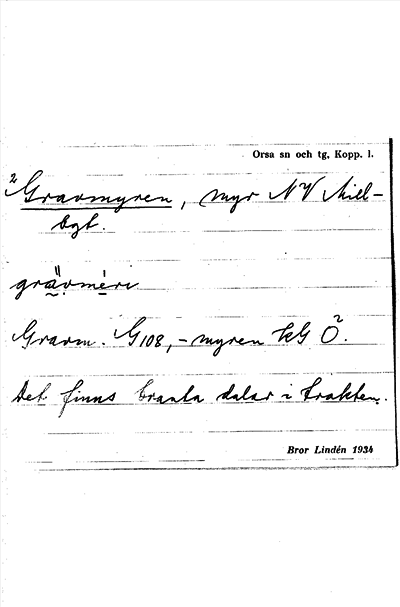 Orsa sn och tg, Kopp. l.
2 Gravmyren, myr NV Miel-
bgt.
grävmėri
Gravm. G108, -myren kG Ö2.
Det finns branta dalar i trakten.
Bror Lindén 1934